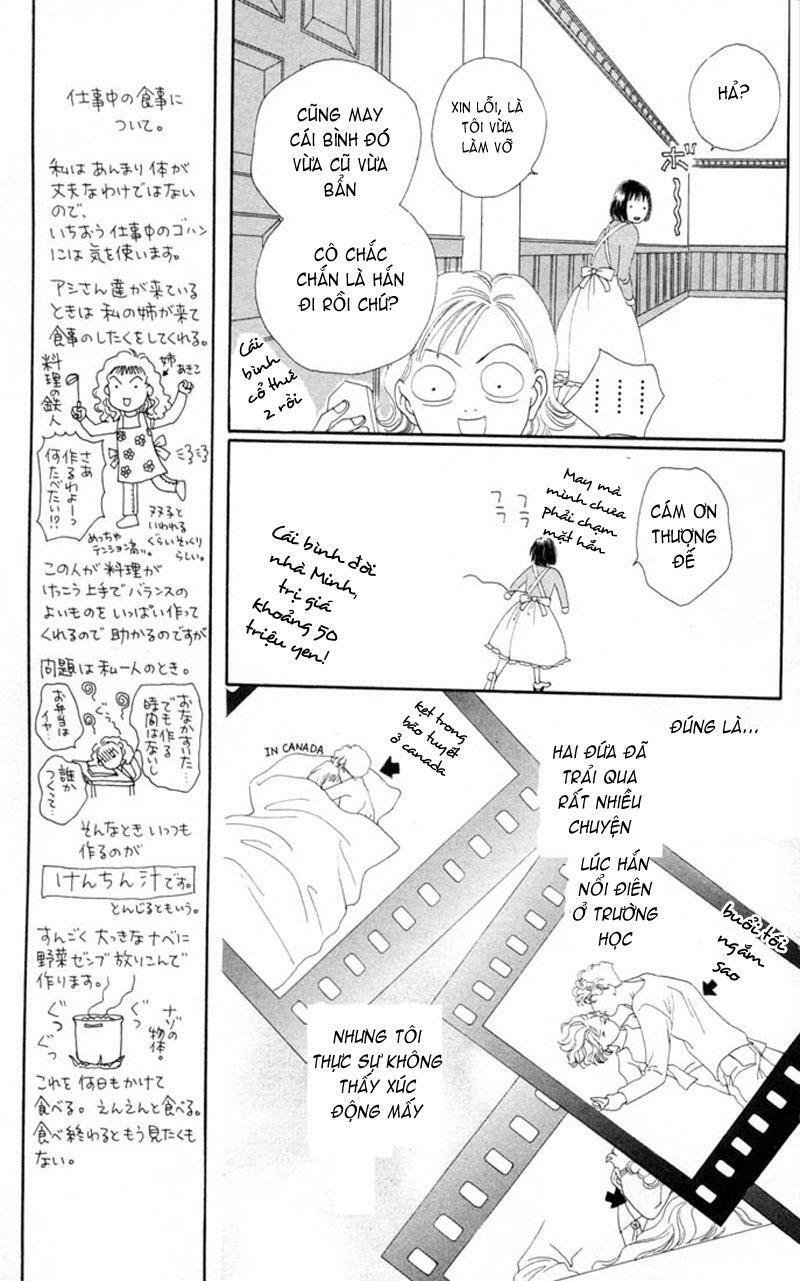 仕事中の食事に
ついて。
私は あんまり 体が
丈夫なわけではない
ので、
いちおう 仕事中のゴハン
には気を使います。
アシさん達が来ている
ときは 私の姉が来て
食事のしたくをしてくれる。
料理の鉄人
姉
あきこ
さあ
作るわよーっ
何たべたい!?
めっちゃ
テンション高い。
双子と
いわれる
ぐらいそっくり
らしい。
この人が 料理が
けっこう上手で バランスの
よいものを いっぱい作って
くれるので 助かるのですが
問題は私一人のとき。
おなかすいた…
でも作る
時間はないし
お弁当は
イヤ…
ぐぅ
誰か
つくって…
そんなとき いつも
作るのが
けんちん汁です。
とんじるともいう。
すんごく 大っきなナベに
野菜ゼンブ 放りこんで
作ります。
ぐつ
ぐつ
ナゾの
物体。
これを 何日もかけて
食べる。えんえんと食べる。
食べ終わるともう見たくも
ない。
HẢ?
XIN LỖI, LÀ
TÔI VỪA
LÀM VỠ
CŨNG MAY
CÁI BÌNH ĐÓ
VỪA CŨ VỪA
BẨN
CÔ CHẮC
CHẮN LÀ HẮN
ĐI RỒI CHỨ?
ボ〜
Cái
bình
cổ thứ
2 rồi
CÁM ƠN
THƯỢNG
ĐẾ
May mà
mình chưa
phải chạm
mặt hắn
Cái bình đời
nhà Minh,
trị giá
khoảng 50
triệu yen!
ĐÚNG LÀ...
HAI ĐỨA ĐÃ
TRẢI QUA
RẤT NHIỀU
CHUYỆN
IN CANADA
kẹt trong
bão tuyết
ở canada
LÚC HẮN
NỔI ĐIÊN
Ở TRƯỜNG
HỌC
buổi tối
ngắm
sao
NHƯNG TÔI
THỰC SỰ KHÔNG
THẤY XÚC
ĐỘNG MẤY